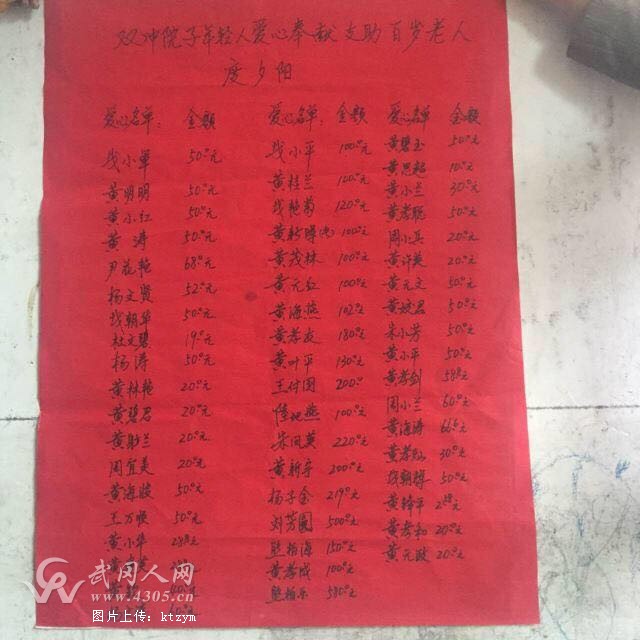 双冲院子年轻人爱心奉献支助百岁老人
度夕阳
爱心名单: 金额
戏小軍 50元
黄明明 50元
黄小红 50元
黄涛 50元
尹花艳 68元
杨文贤 52元
朝华 50元
杜文碧 19元
杨涛 50元
黄林艳 20元
黄碧君 20元
黄兰 20元
周宜美 20元
黄海 50元
王万顺 50元
黄小华 288元
爱心名单 金额
小平 100元
黄桂兰 100元
艳菊 120元
黄 100元
黄茂林 100元
黄元红 100元
黄海燕 102元
黄孝友 180元
黄叶平 130元
王付国 200
燕 100元
朱凤英 220元
黄新 200元
杨子金 219元
刘芳圆 500元
熊柏海 150元
黄孝成 100元
熊柏乐 580元
爱心名单 金额
黄碧玉 50元
黄思超 10元
黄小兰 30元
黄孝聪 50元
周小兵 20元
黄许英 20元
黄元文 50元
黄姣君 50元
朱小芳 50元
黄小平 50元
黄孝剑 588元
周小兰 60元
黄海涛 666元
黄孝 30元
朝辉 50元
黄锋平
黄孝和 20元
黄元政 20元
武冈人网
www.4305.cn
图片上传：ktzym